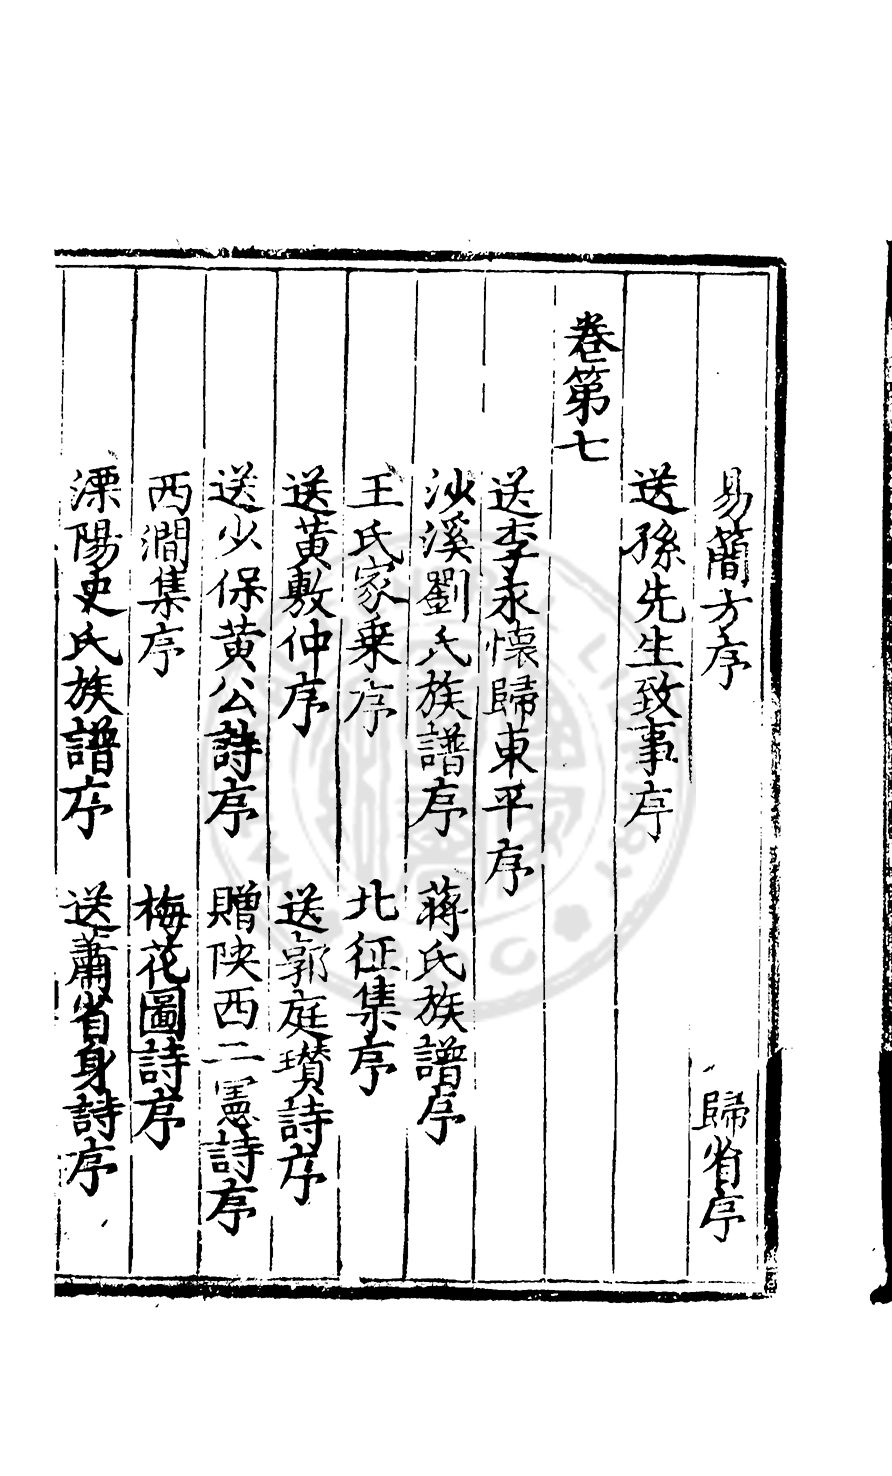 易簡方序　歸省序
送孫先生致事序
卷第七
送李永懷歸東平序
沙溪劉氏族譜序　蔣氏族譜序
王氏家乗序　北征集序
送黄敷仲序　送郭庭瓚詩序
送少保黄公詩序　贈陕西二憲詩序
西澗集序　梅花圖詩序
溧陽史氏族譜序　送蕭省身詩序